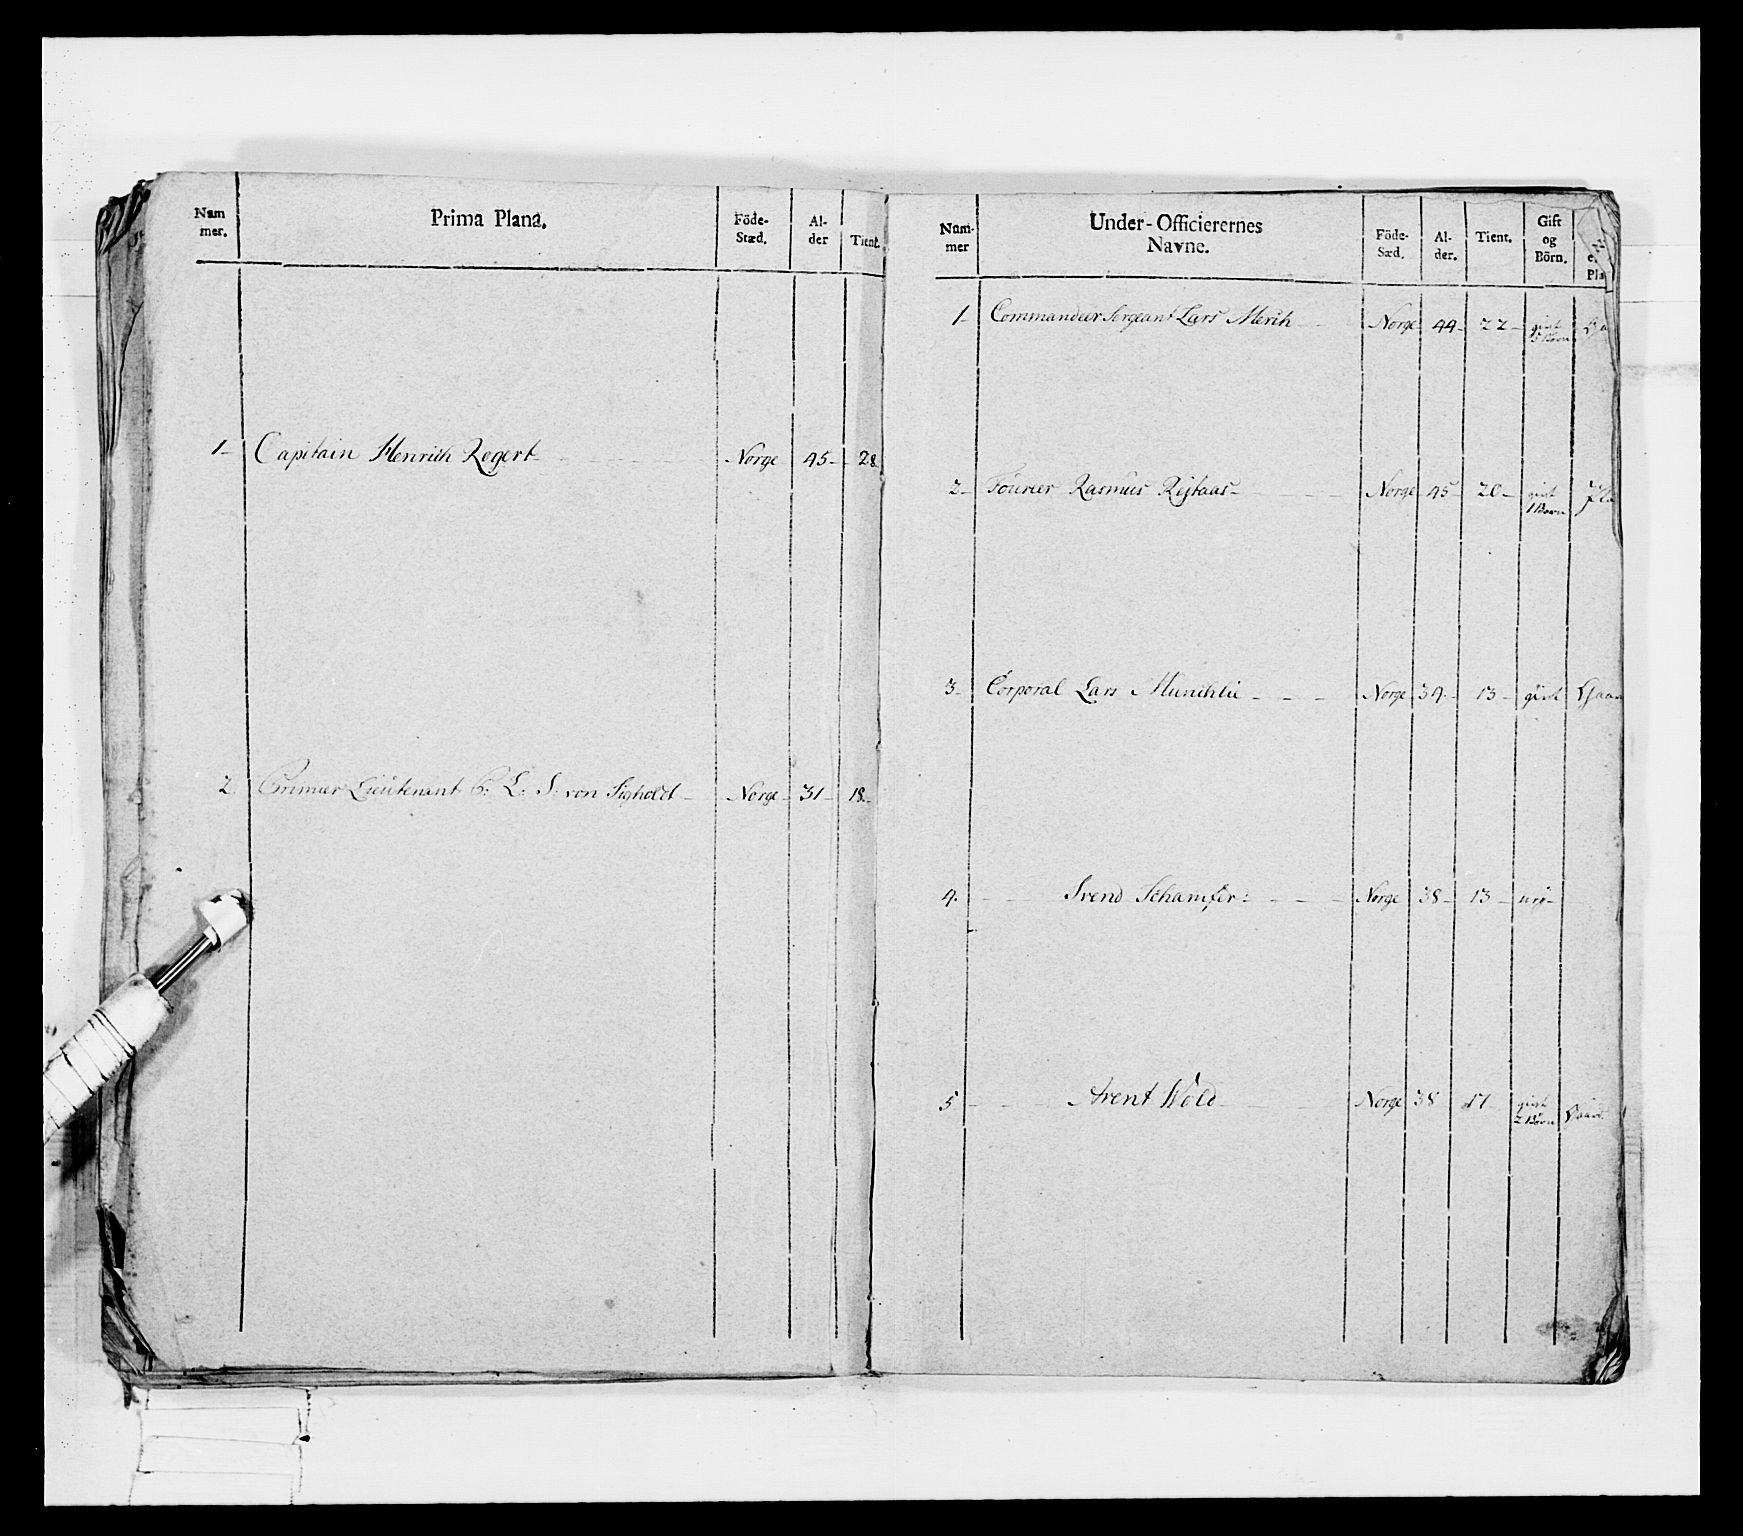 Num mer. Prima Plana. Föde-Stæd. Al-der Tient.
1 Capitain Henrich Regert Norge 45 28
2 Primier Lieutenant C: L: S: von Sigholdt Norge 31 18
Num-mer Under-Officierernes Navne. Föde-Sæd. Al-der. Tient. Gift og Börn.
1 Commandeer Sergeant Lars Merih Norge 44 22 givt 3 Börn
2 Fourier Rasmus Rejstaas Norge 45 20 givt 1 Barn
3 Corporal Lars Munchlie Norge 34 13 givt
4. Svend Norge 38 13
5 Arent Wold Norge 38 17 givt 2 Börn